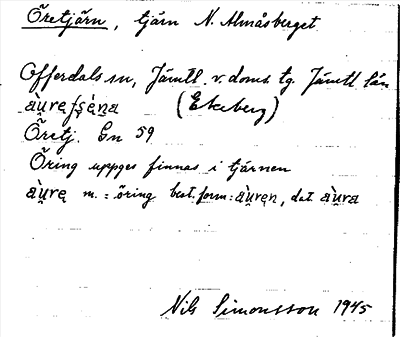 Öretjärn, tjärn N. Almåsberget
Offerdals sn, Jämtl. v. doms tg. Jämtl län
àu̯ręʃęèna (Ekeberg)
Öretj. Gn 59
Öring uppges finnas i tjärnen
àu̯rę m. = öring best. form: àu̯ręn, dat àu̯ra
Nils Simonsson 1945